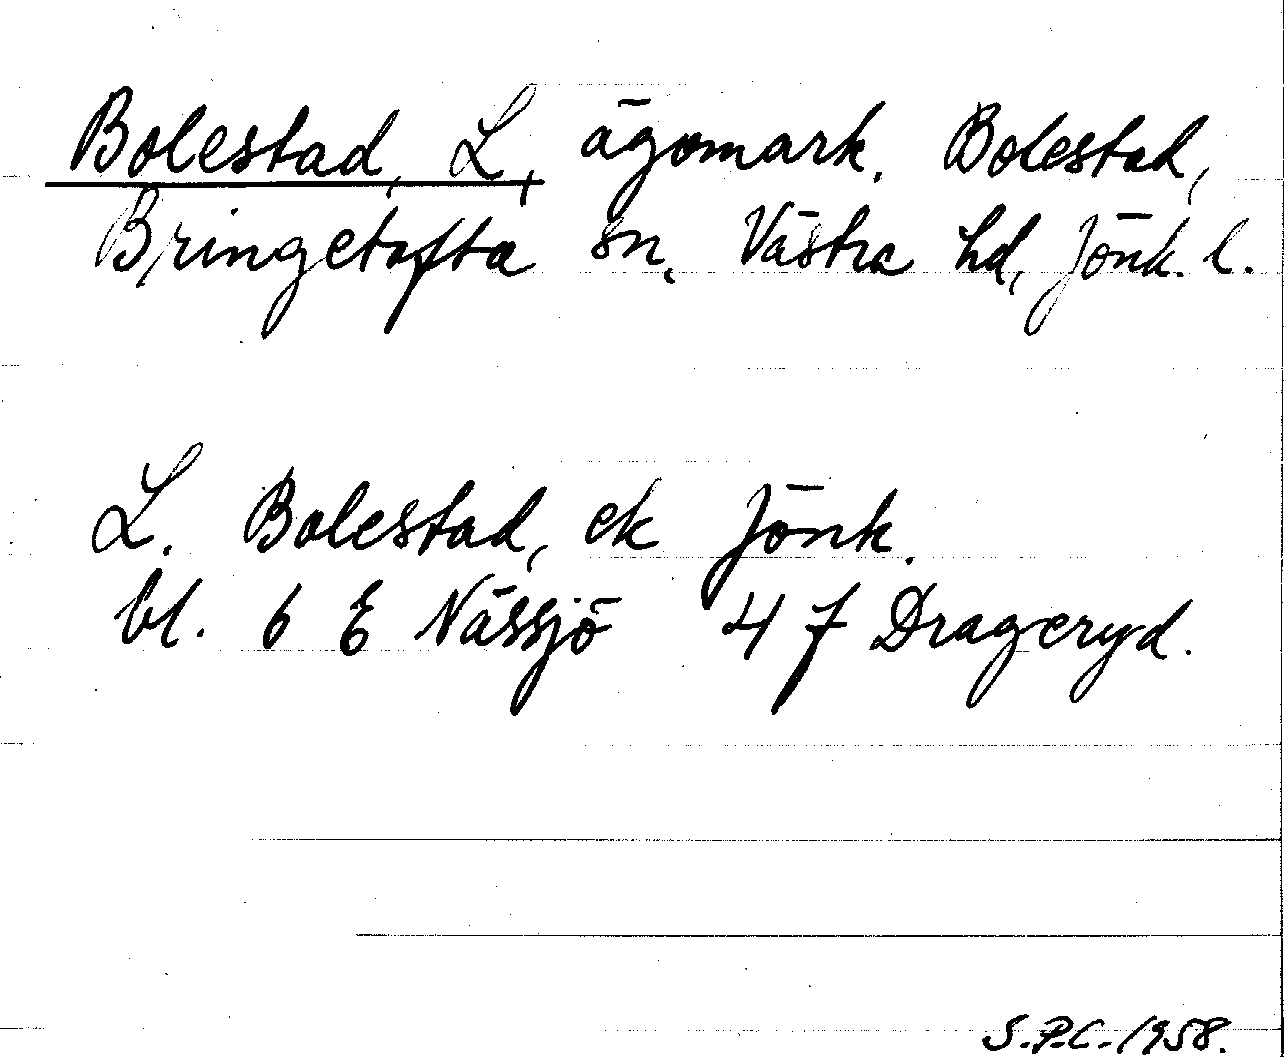 Bolestad, L, ägomark, Bolestad,
Bringetofta sn, Västra hd, Jönk. l.
L. Bolestad, ek Jönk.
bl. 6 E Nässjö 4 f Drageryd.
S.P.C. 1958.